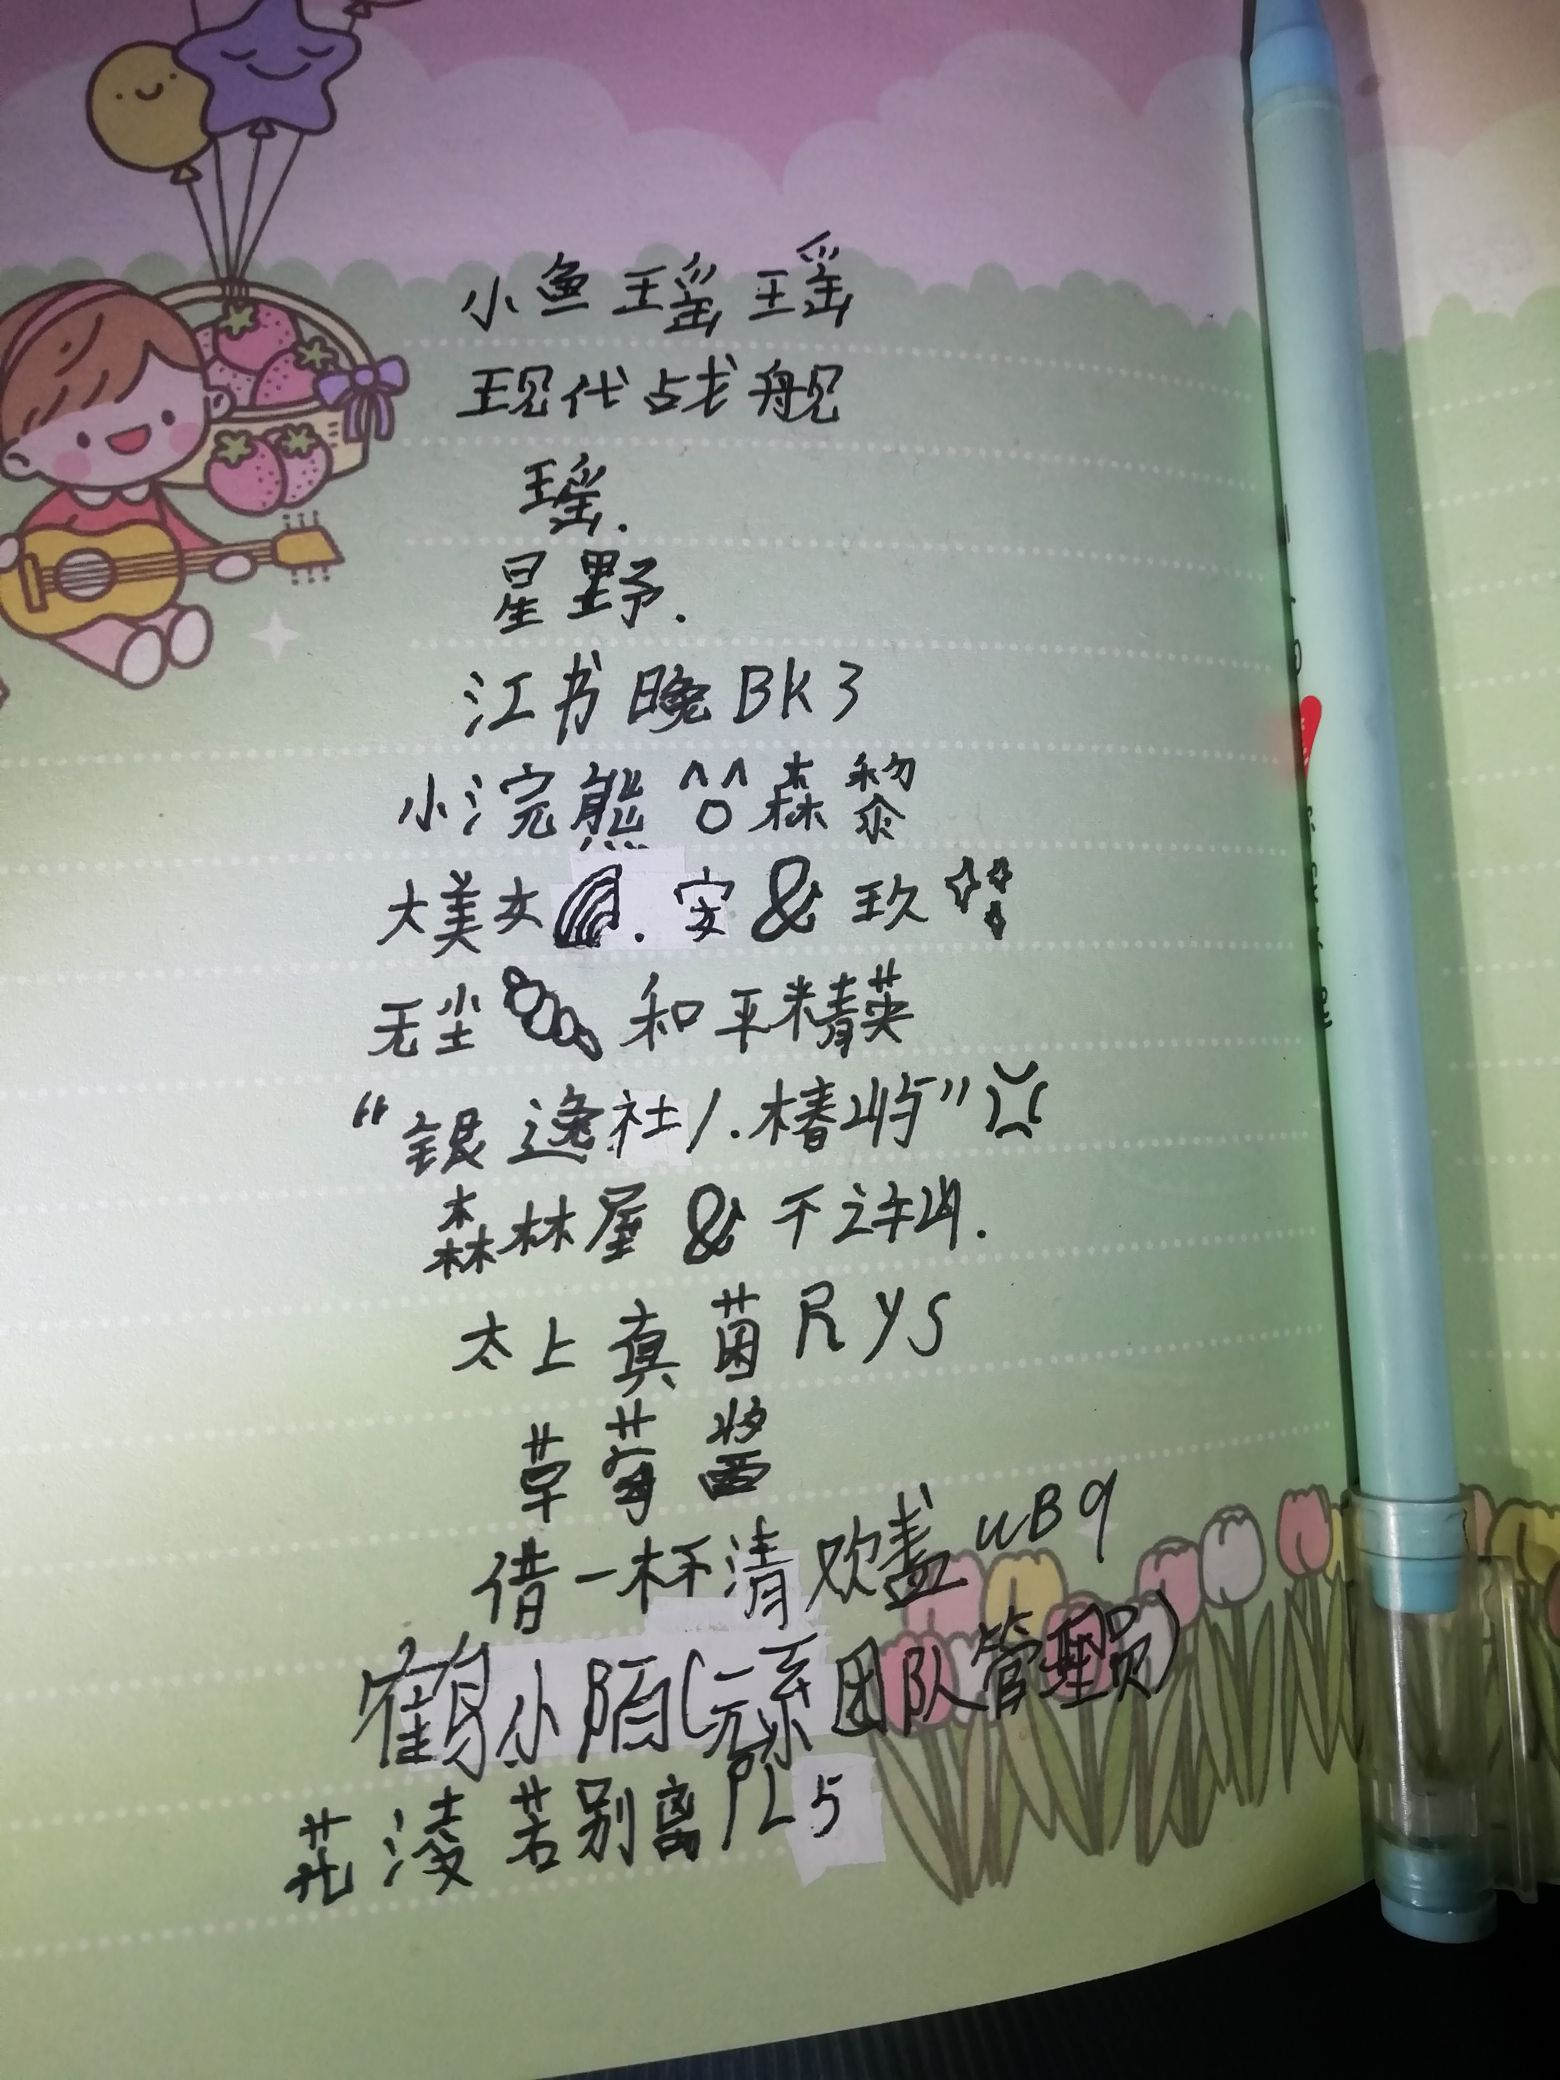 小鱼瑶瑶
现代战舰
瑶.
星野.
江书晚BK3
小浣熊 森黎
大美女 . 安&玖
无尘 和平精英
“银逸社/.椿屿”
森林屋&千许山.
太上真茵Rys
草莓酱
借一杯清欢盏uB9
鹤小陌(元系团队管理员)
花凌若别离PL5